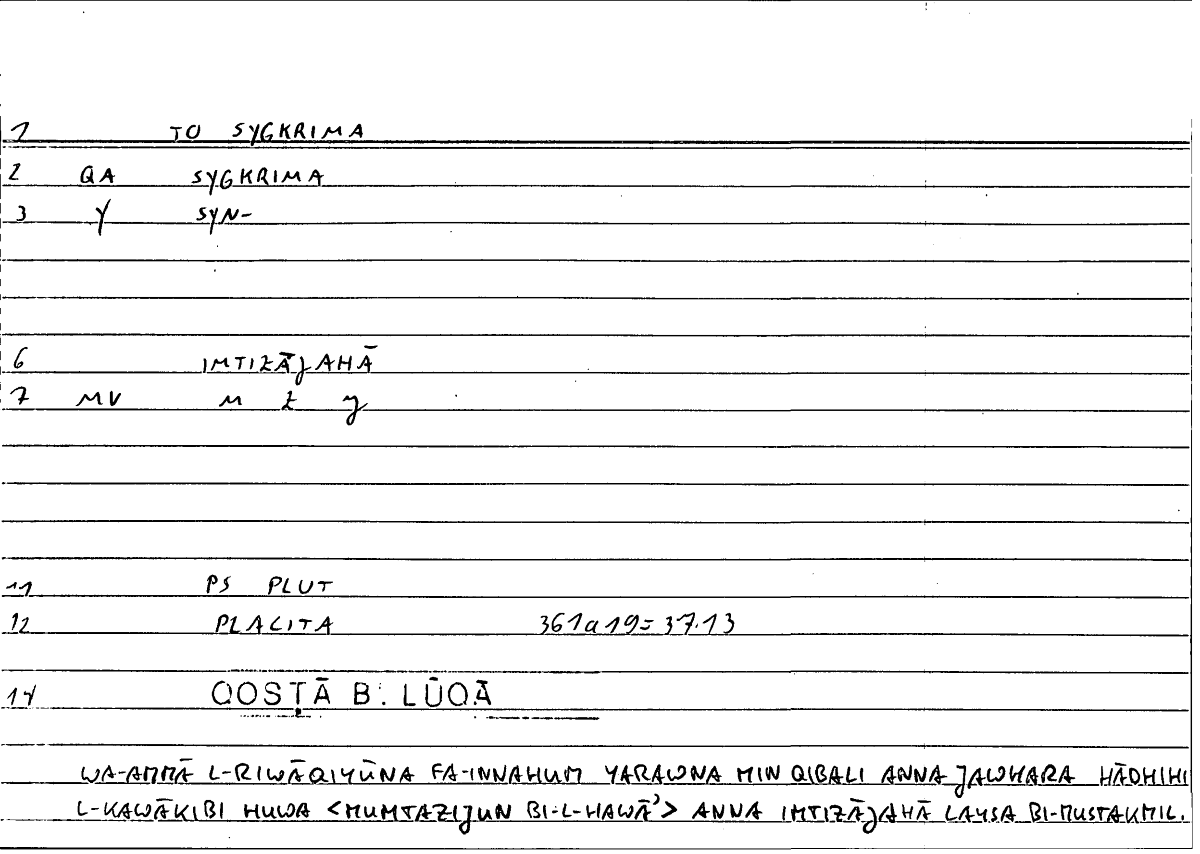 1 TO SYGKRIMA
2 QA SYGKRIMA
3 Y SYN-
6 IMTIZĀJAHĀ
7 MV m z j
11 PS PLUT
12 PLACITA 361a19=37.13
14 QOSṬĀ B. LŪQĀ
WA-AMMĀ L-RIWĀQIYŪNA FA-INNAHUM YARAWNA MIN QIBALI ANNA JAWHARA HĀDHIHI
L-KAWĀKIBI HUWA <MUMTAZIJUN BI-L-HAWĀʾ> ANNA IMTIZĀJAHĀ LAYSA BI-MUSTAKMIL.